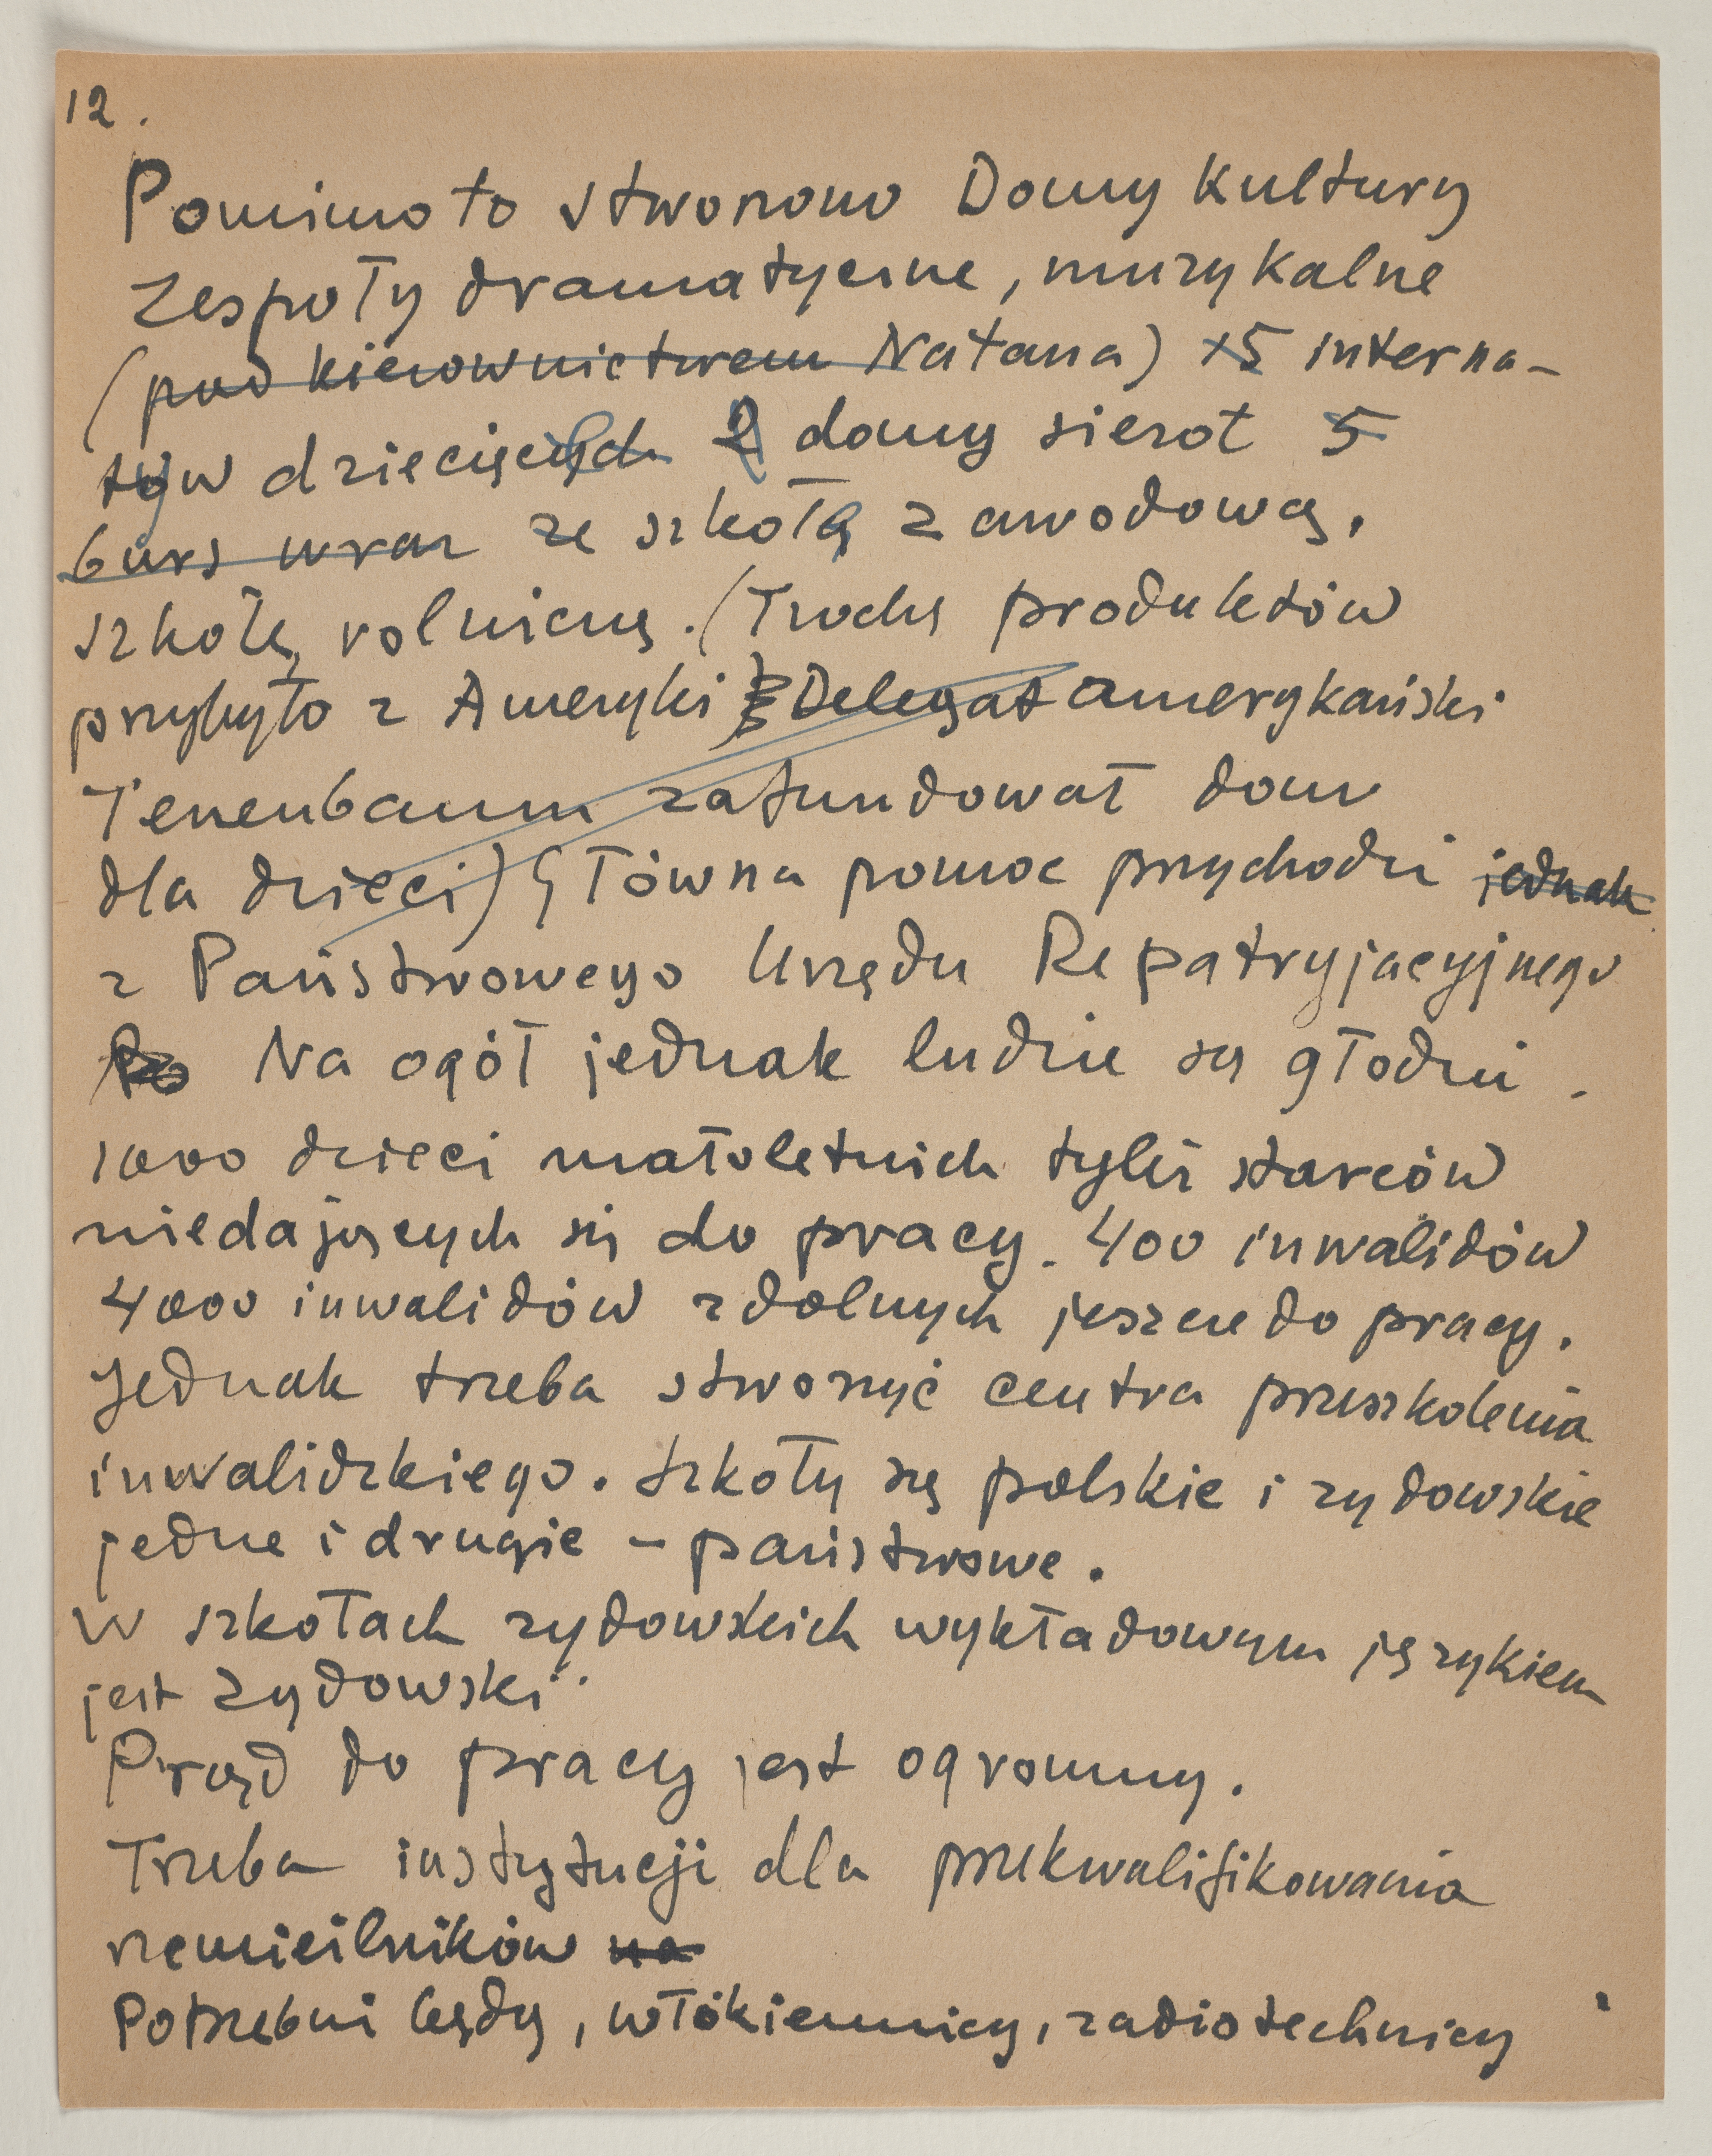 12.
Pomimo to stworzono Domy Kultury
zespoły dramatyczne, muzykalne
(pod kierownictwem Natana) 5 interna-
tów dziecięcych 2 domy sierot 5
burs wraz ze szkołą zawodową,
szkołę rolniczą. (Trochę produktów
przybyło z Ameryki Delegat amerykański
Tenenbaum zafundował dom
dla dzieci) Główna pomoc przychodzi jednak
z Państwowego Urzędu Repatryjacyjnego
Na ogół jednak ludzie są głodni.
1000 dzieci małoletnich tyleż starców
niedających się do pracy. 400 inwalidów
4000 inwalidów zdolnych jeszcze do pracy.
Jednak trzeba stworzyć centra przeszkolenia
inwalidzkiego. Szkoły są polskie i zydowskie
jedne i drugie – państwowe.
W szkołach zydowskich wykładowym językiem
jest zydowski.
Prąd do pracy jest ogromny.
Trzeba instytucji dla przekwalifikowania
rzemieślników na
Potrzebni będą, włókiennicy, radiotechnicy